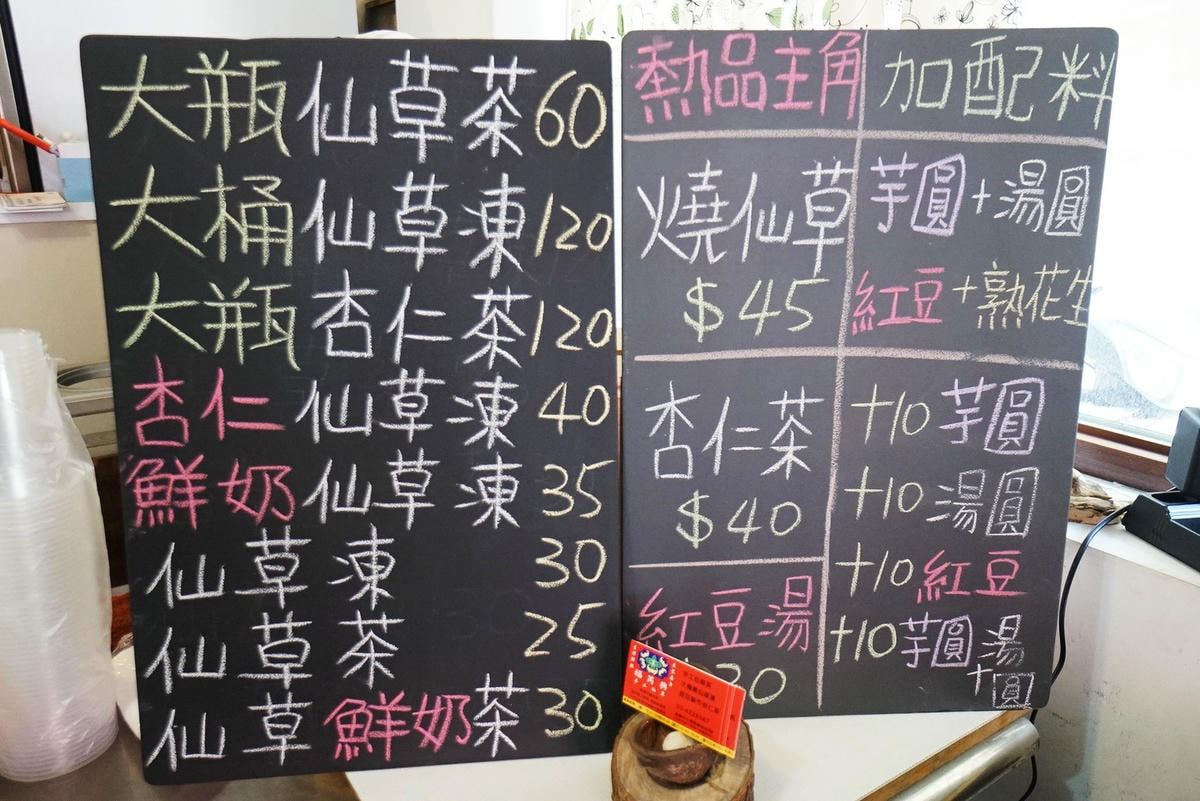 大瓶仙草茶 60
大桶仙草凍 120
大瓶杏仁茶 120
杏仁仙草凍 40
鮮奶仙草凍 35
仙草凍 30
仙草茶 25
仙草鮮奶茶 30
熱品主角
燒仙草
$45
杏仁茶
$40
紅豆湯
加配料
芋圓+湯圓
紅豆+熟花生
+10 芋圓
+10 湯圓
+10 紅豆
+10 芋圓+湯圓